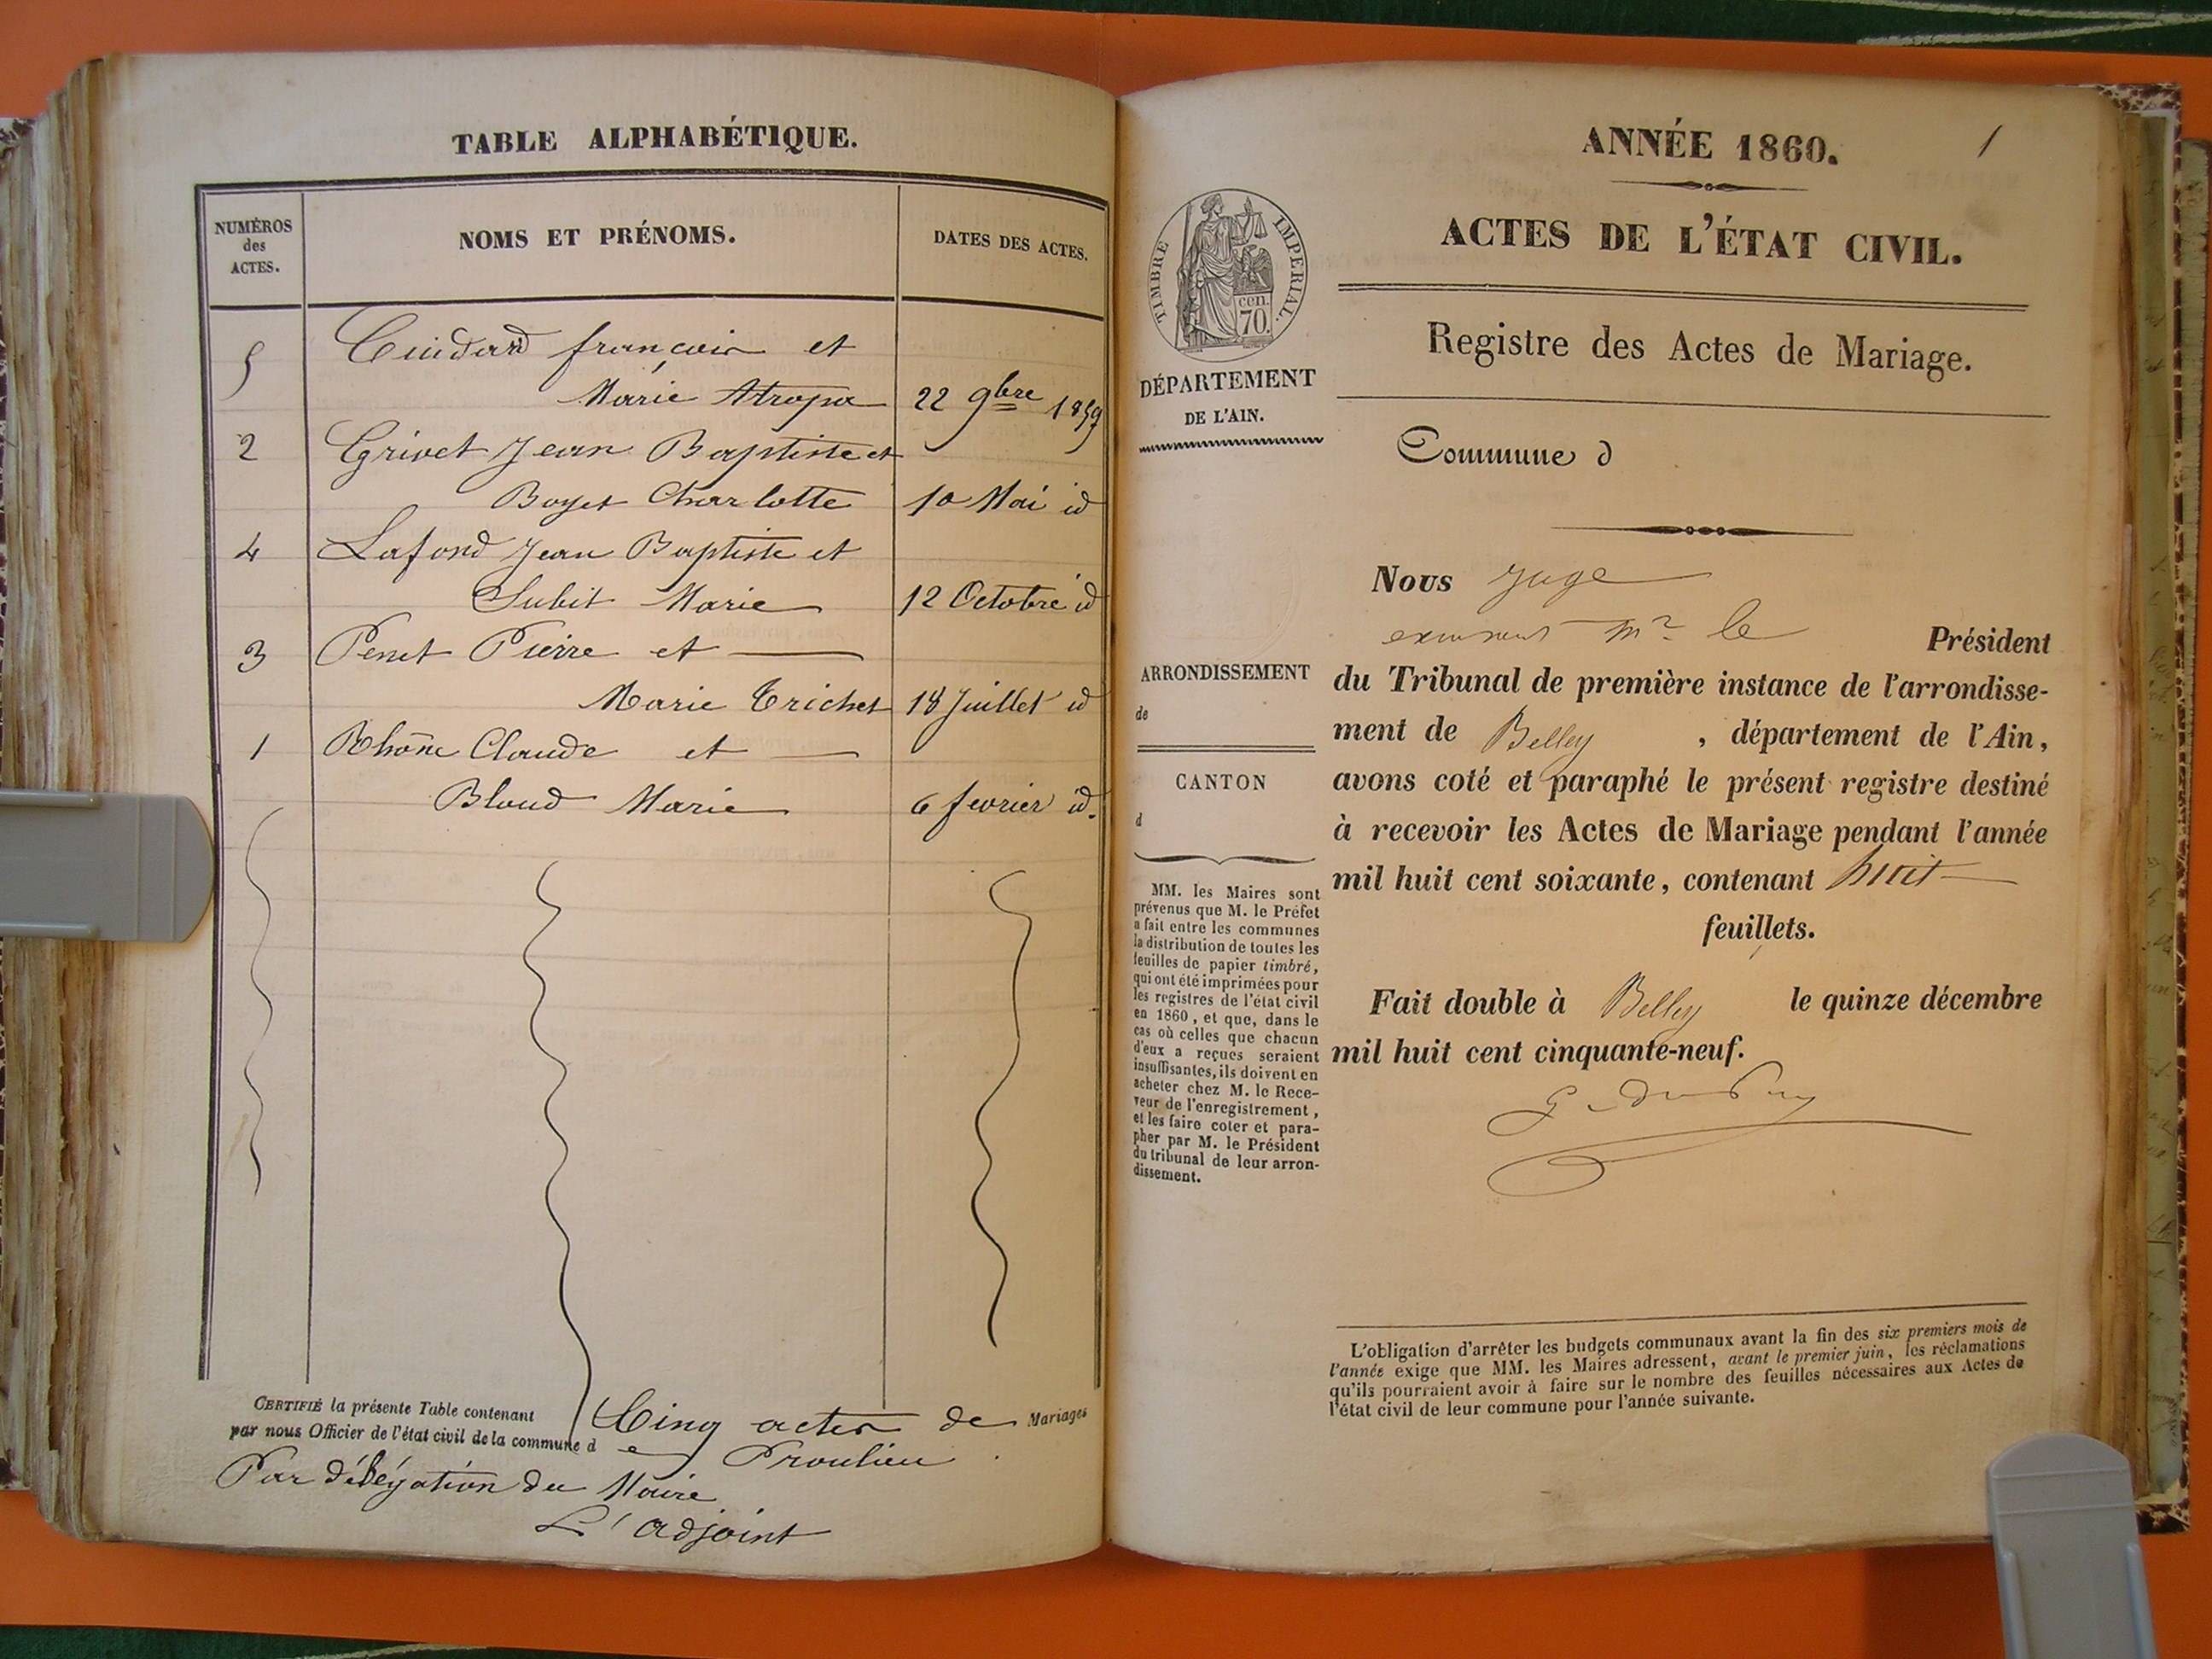 TABLE ALPHABÉTIQUE.
NUMÉROS
des
ACTES.
NOMS ET PRÉNOMS.
DATES DES ACTES.
5 françois et
Marie 22 9bre 1859
2 Grivet Jean Baptiste et
Boyet Charlotte 10 Mai id
4 Lafond Jean Baptiste et
Subit Marie 12 Octobre id
3 Penet Pierre et
Marie Trichet 18 Juillet id
1 Rhône Claude et
Bloud Marie 6 fevrier id.
CERTIFIÉ la présente Table contenant Cinq actes de Mariages
par nous Officier de l'état civil de la commune de Proulieu
Par délégation du Maire
L'adjoint
1
ANNÉE 1860.
ACTES DE L'ÉTAT CIVIL.
Registre des Actes de Mariage.
TIMBRE IMPERIAL.
cen.
70.
DÉPARTEMENT
DE L'AIN.
ARRONDISSEMENT
de
CANTON
d
MM. les Maires sont
prévenus que M. le Préfet
a fait entre les communes
la distribution de toutes les
feuilles de papier timbré,
qui ont été imprimées pour
les registres de l'état civil
en 1860, et que, dans le
cas où celles que chacun
d'eux a reçues seraient
insuffisantes, ils doivent en
acheter chez M. le Rece-
veur de l'enregistrement,
et les faire coter et para-
pher par M. le Président
du tribunal de leur arron-
dissement.
Commune d
Nous juge
mr le Président
du Tribunal de première instance de l'arrondisse-
ment de Belley, département de l'Ain,
avons coté et paraphé le présent registre destiné
à recevoir les Actes de Mariage pendant l'année
mil huit cent soixante, contenant huit
feuillets.
Fait double à Belley le quinze décembre
mil huit cent cinquante-neuf.
L'obligation d'arrêter les budgets communaux avant la fin des six premiers mois de
l'année exige que MM. les Maires adressent, avant le premier juin, les réclamations
qu'ils pourraient avoir à faire sur le nombre des feuilles nécessaires aux Actes de
l'état civil de leur commune pour l'année suivante.